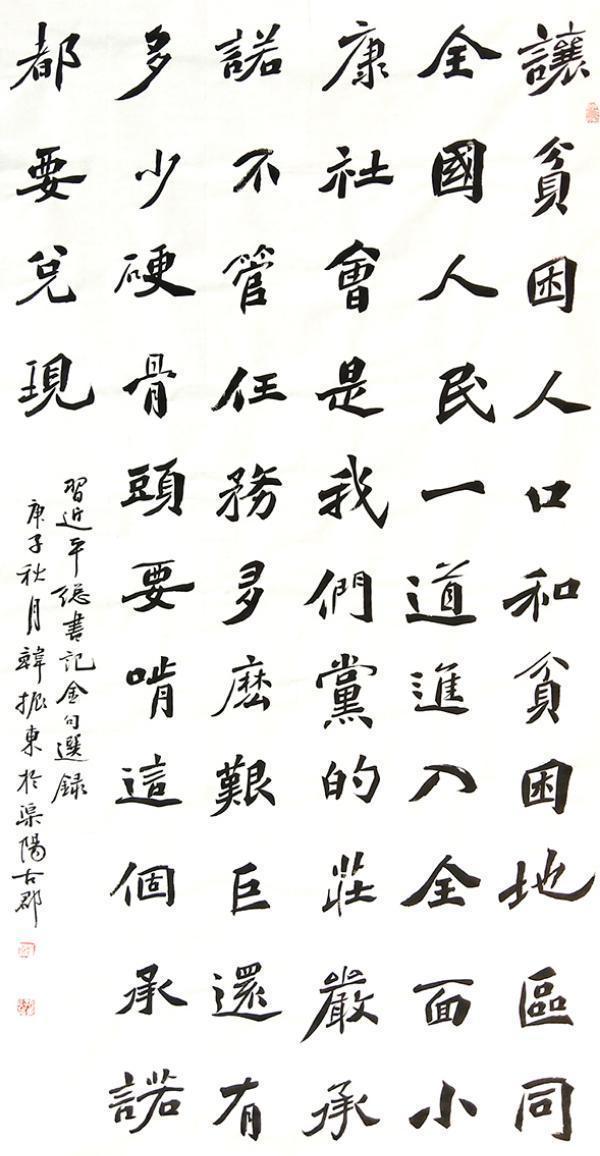 讓貧困人口和貧困地區同
全國人民一道進入全面小
康社會是我們黨的莊嚴承
諾不管任務多麼艱巨還有
多少硬骨頭要啃這個承諾
都要兌現
習近平總書記金句選録
庚子秋月韓振東於渠陽古郡